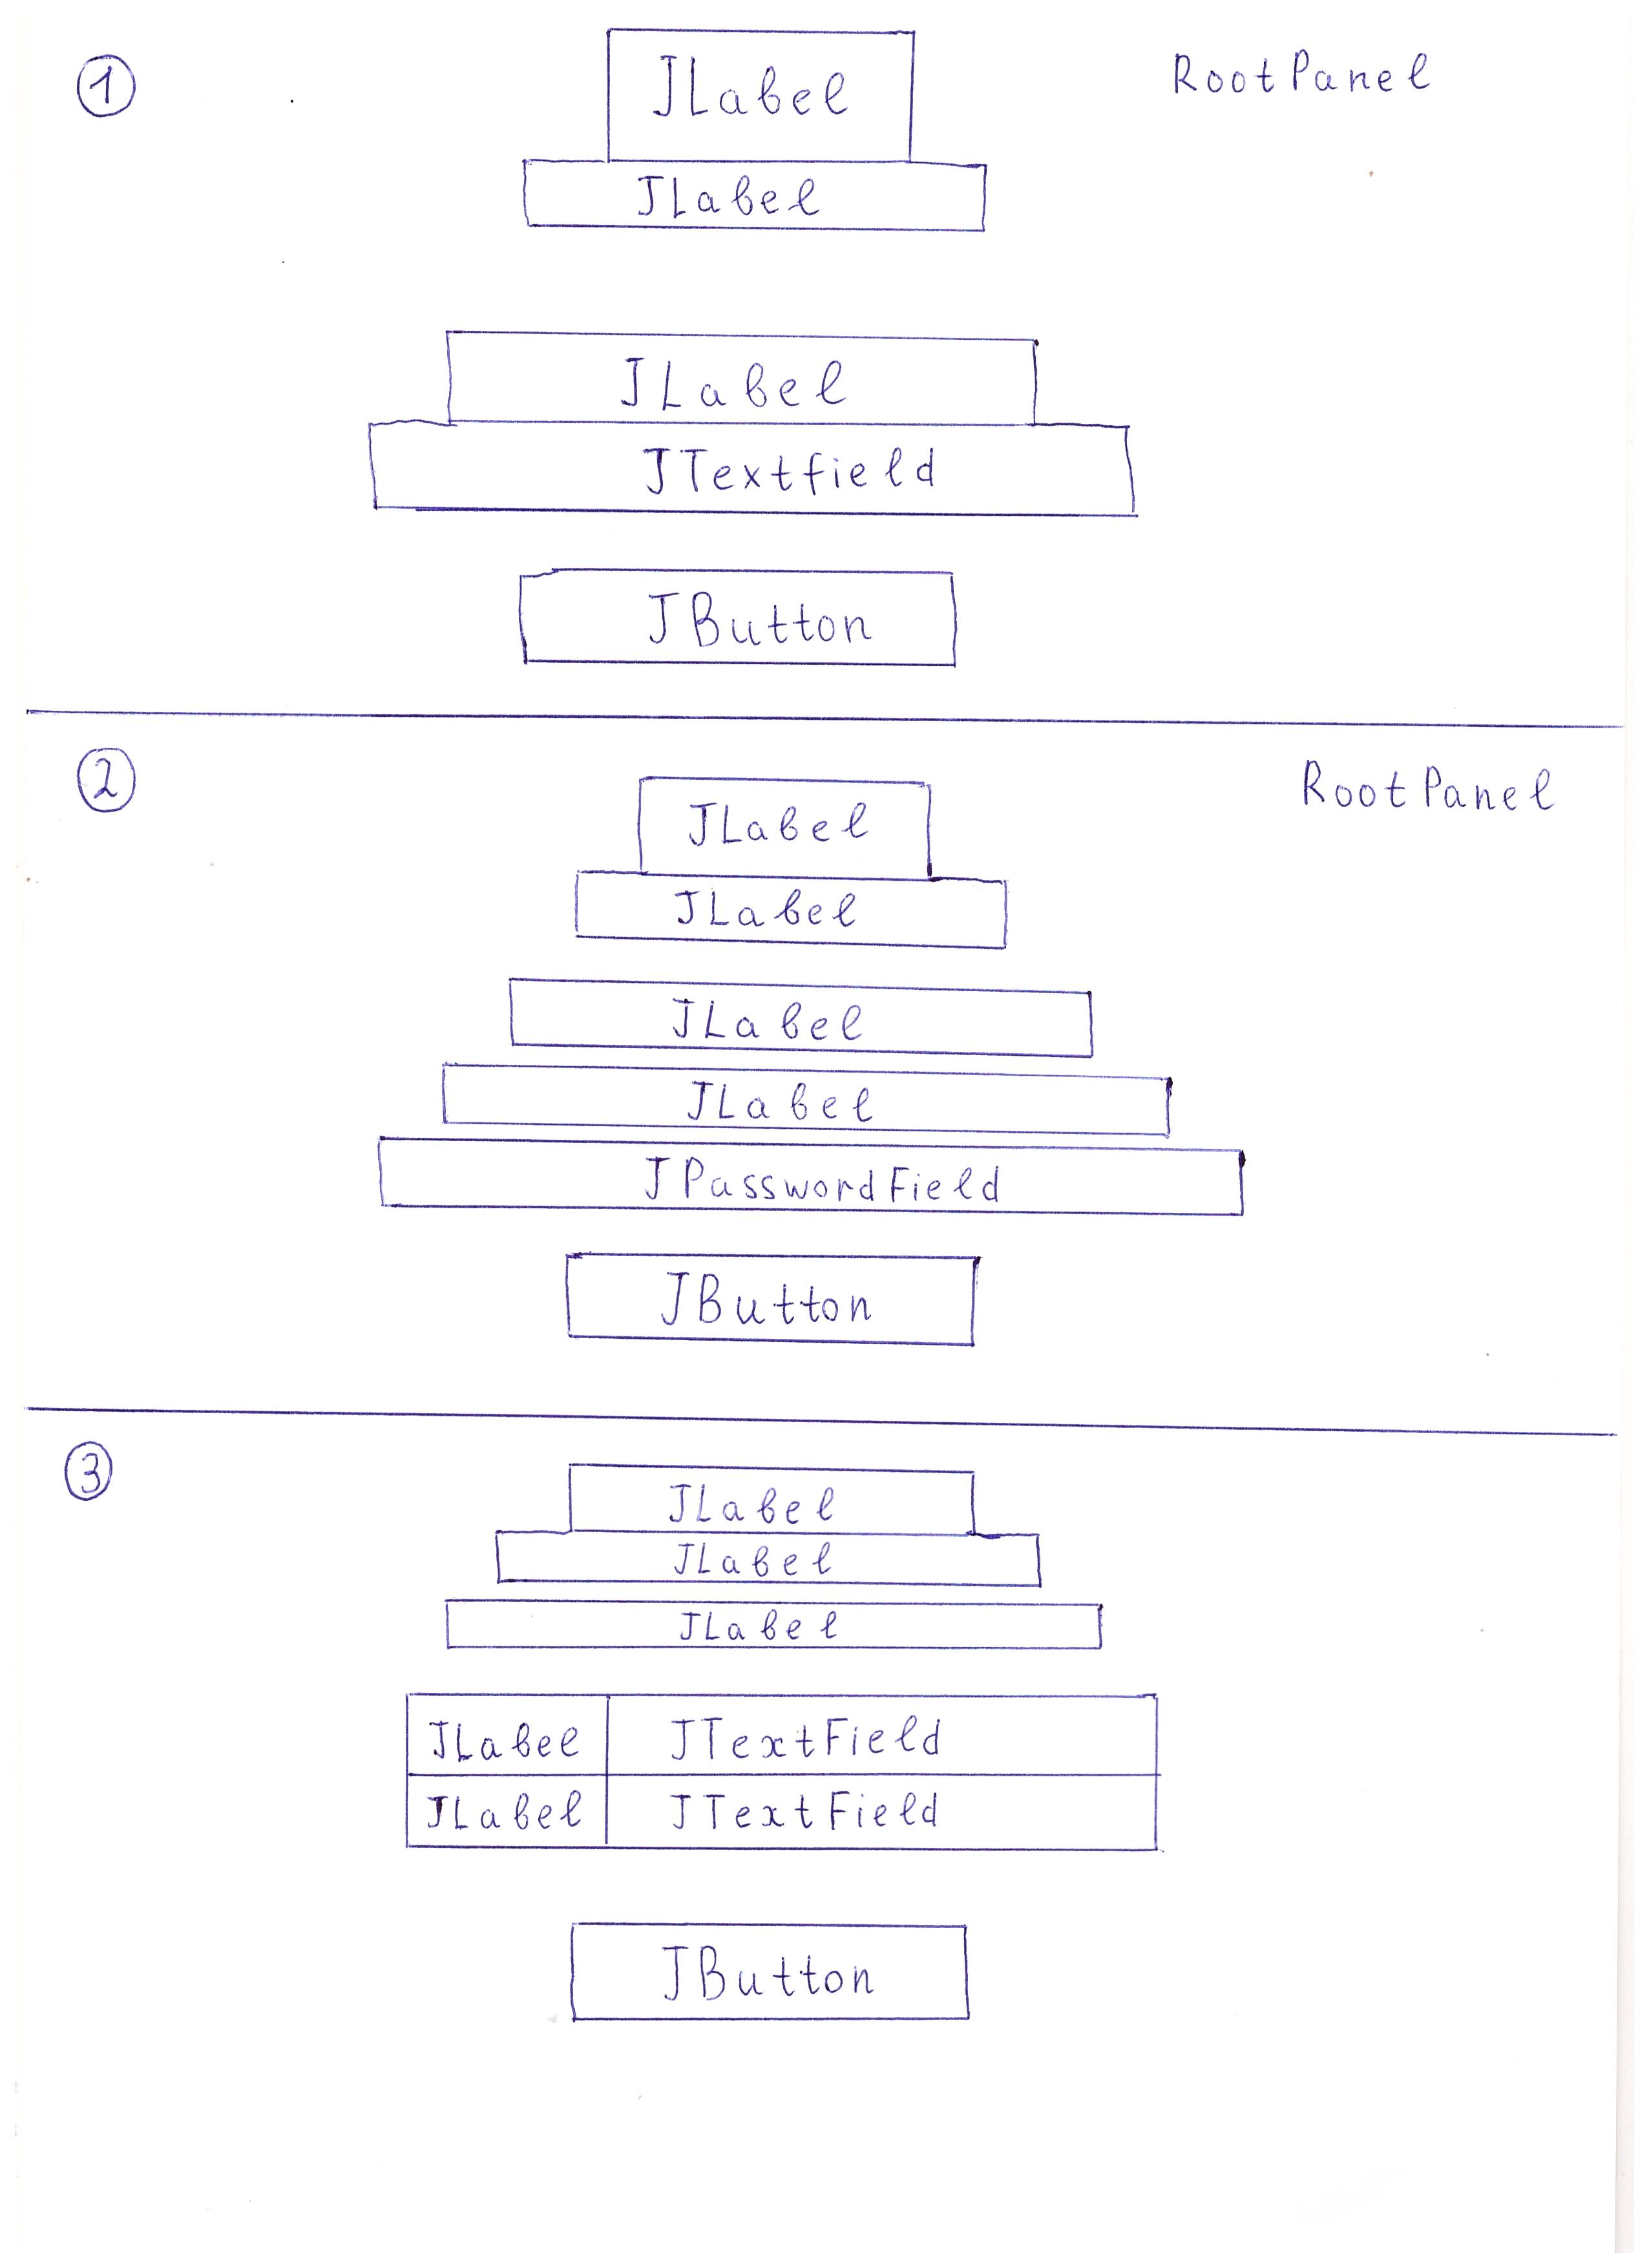 1 JLabel RootPanel
JLabel
JLabel
JTextfield
JButton
2 JLabel RootPanel
JLabel
JLabel
JLabel
JPasswordField
JButton
3 JLabel
JLabel
JLabel
JLabel JTextField
JLabel JTextField
JButton